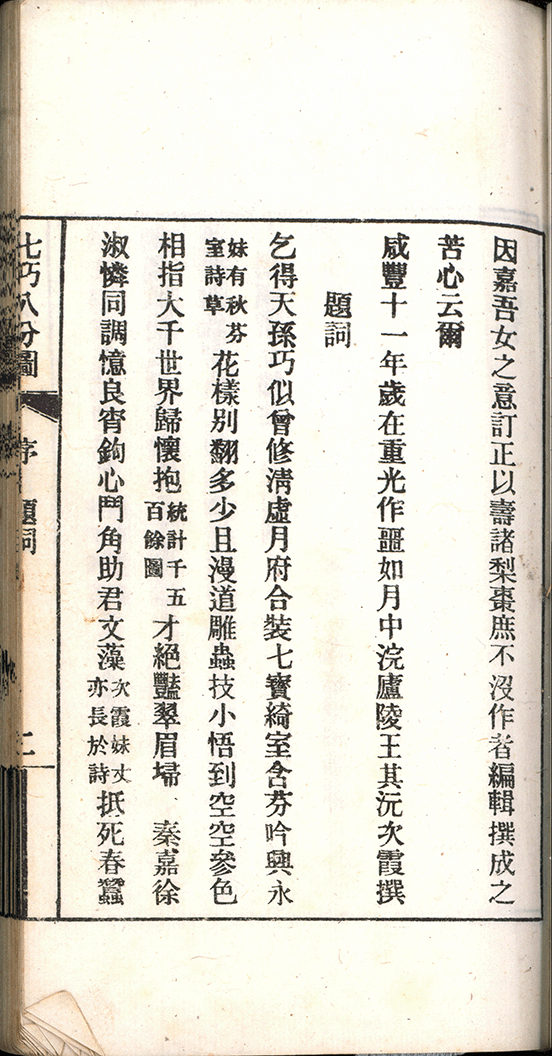 因嘉吾女之意訂正以壽諸梨棗庶不沒作者編輯撰成之
苦心云爾
咸豐十一年歲在重光作噩如月中浣廬陵王其沅次霞撰
題詞
乞得天孫巧似曾修清虛月府合裝七寶綺室含芬吟興永
妹有秋芬
室詩草
花樣別翻多少且漫道雕蟲技小悟到空空參色
相指大千世界歸懷抱
統計千五
百餘圖
才絕豔翠眉埽 秦嘉徐
淑憐同調憶良宵鉤心鬥角助君文藻
次霞妹丈
亦長於詩
抵死春蠶
七巧八分圖
序 題詞